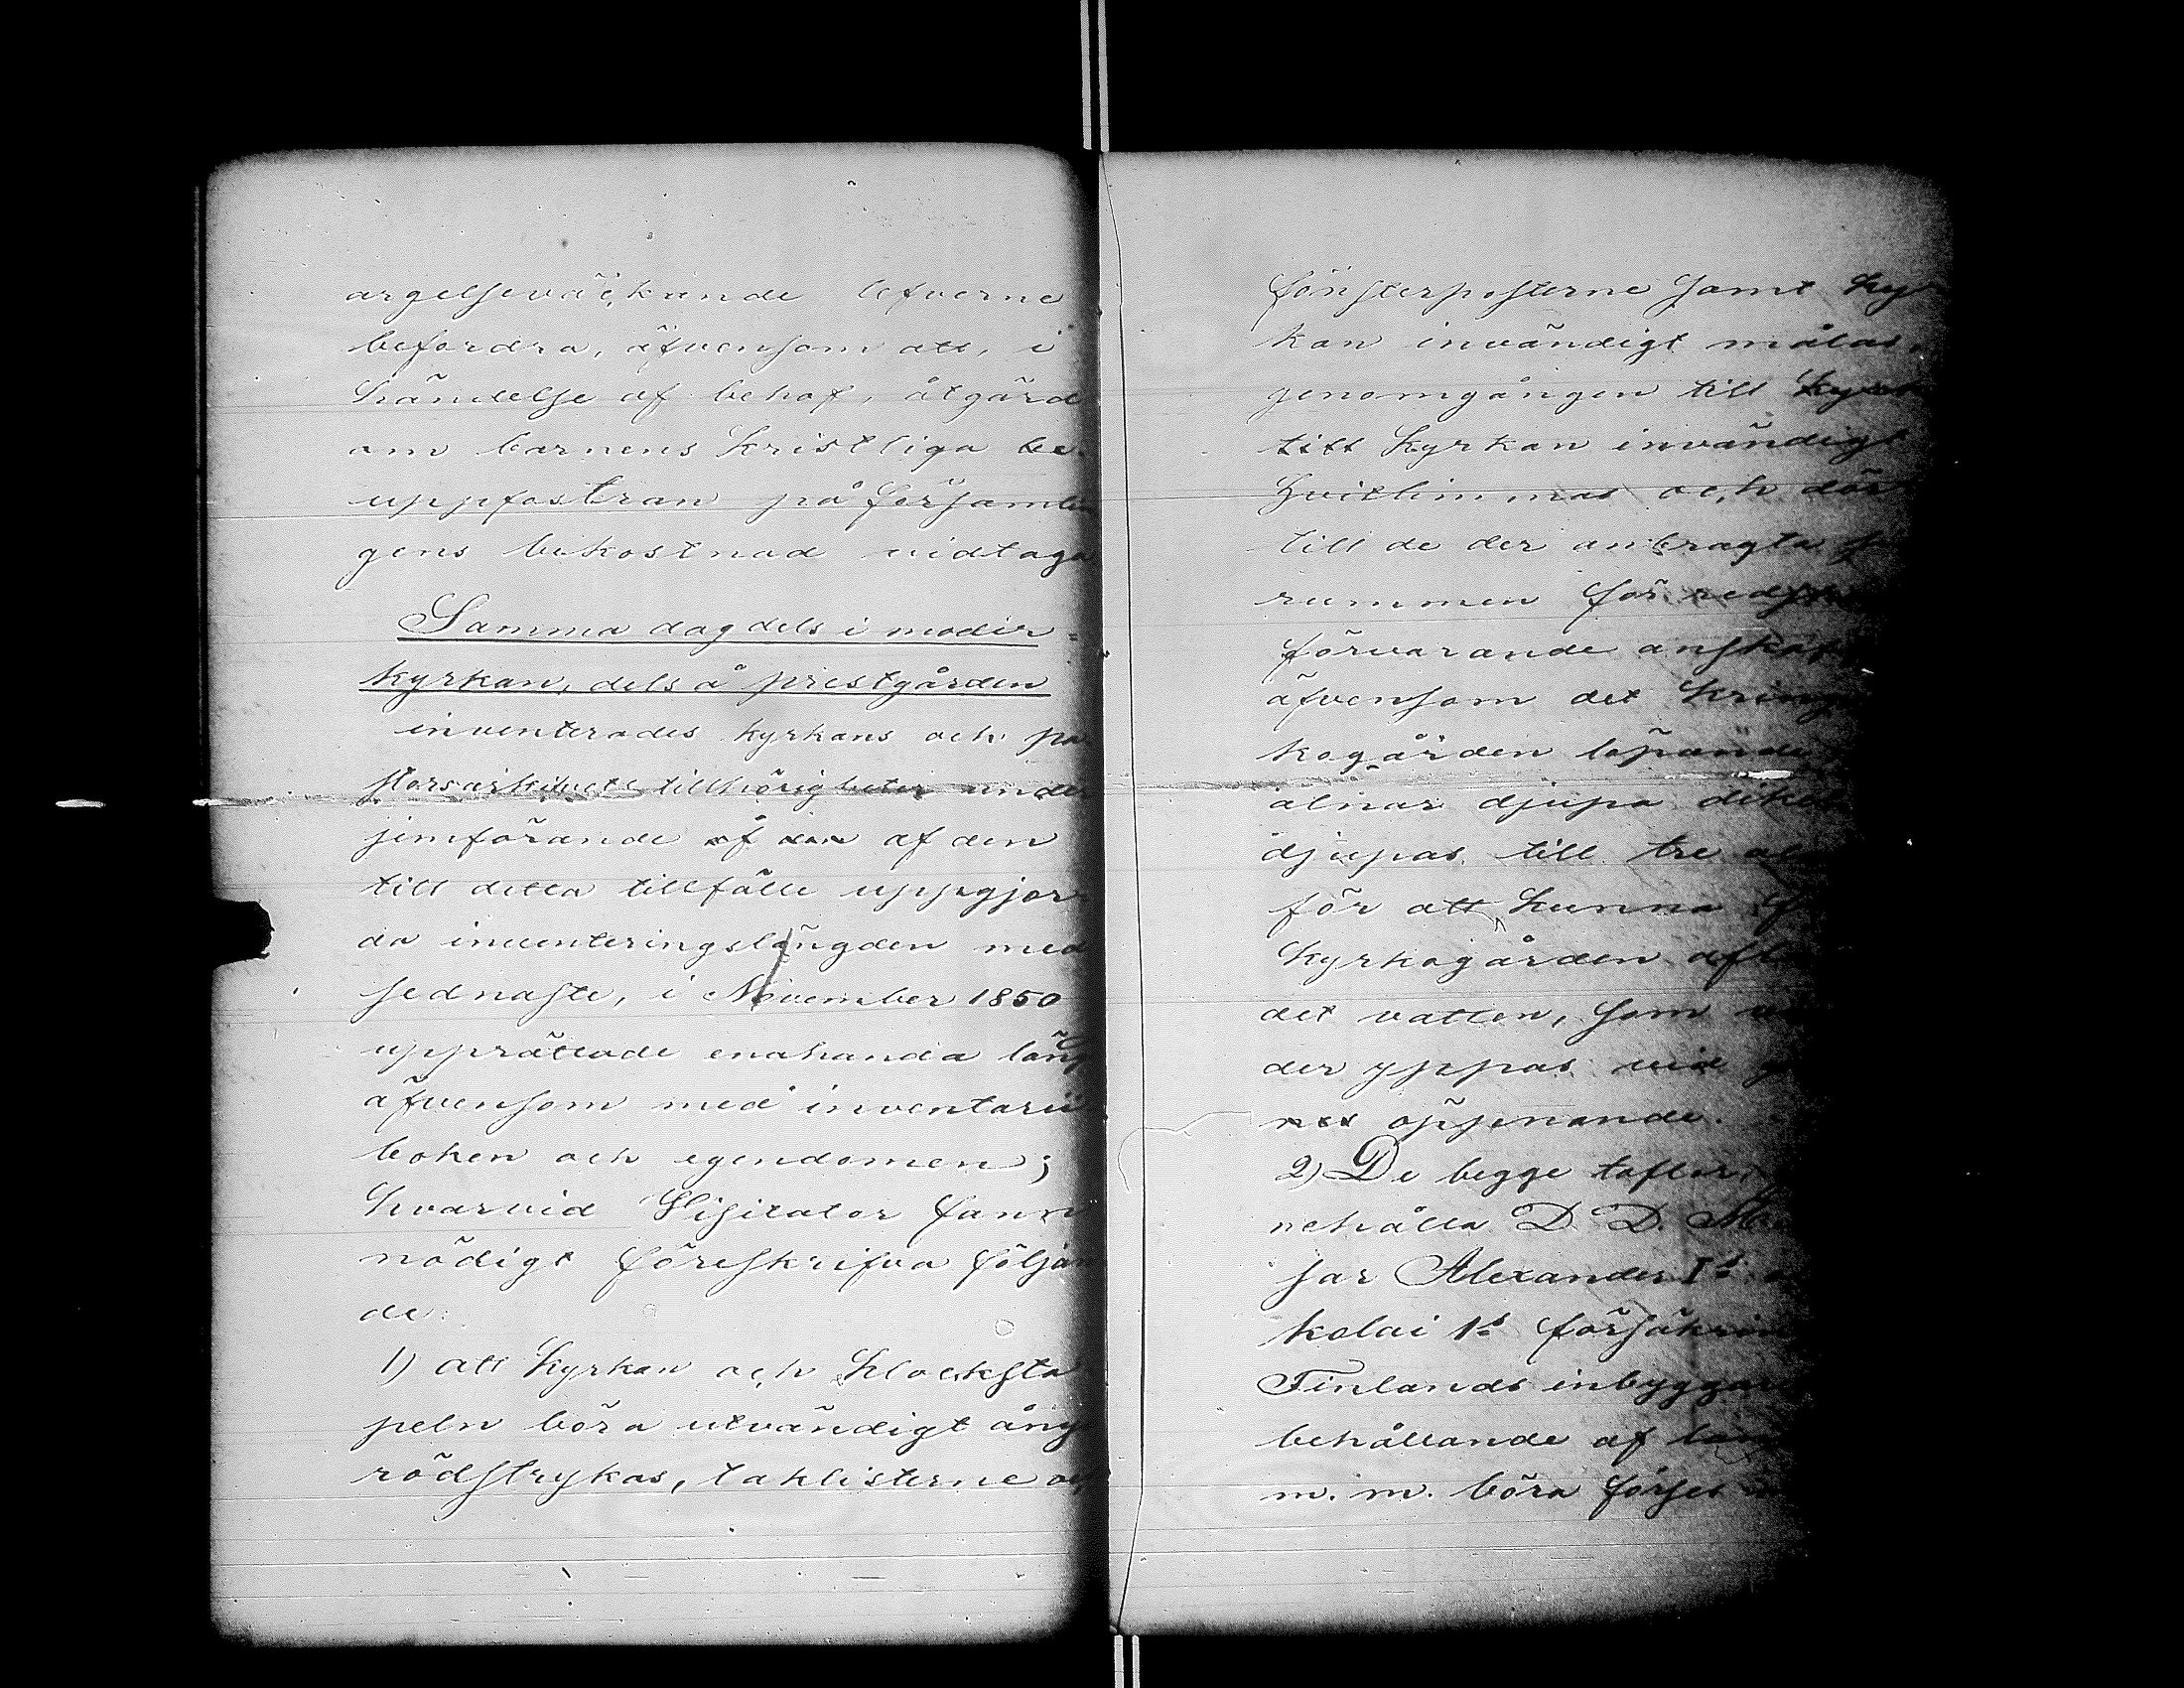 argelseväckande lefverne
befordra, äfvensom att, i
händelse af behof, åtgärd
om barnens Kristliga be-
uppfostran på församlin
gens bekostnad vidtaga
Samma dag dels i moder=
kyrkan, dels å prestgården
inventerades kyrkans och pa
storsarkivets tillhörigheter unde
jemförande af den af den
till detta tillfälle uppgjor
da inventeringslängden med
sednaste, i November 1850
upprättade enahanda läng
äfvensom med inventarii
boken och egendomen;
hvarvid Visitator fann
nödigt föreskrifva följan
de:
1) att Kyrkan och Klocksta
peln böra utvändigt ånyo
rödstrykas, taklisterne och
fönsterposterne samt Kyr
kan invändigt målas,
genomgången till Kyrk
till Kyrkan invändigt
hvitlimmas och dör
till de der anbragta
rummen för
förvarande anskaf
äfvensom det kring
kogården löpande
alnar djupa diket
djupas till tre al
för att kunna
Kyrkogården afl
det vatten, som
der yppas vid
nes öppenande.
2) De begge taflor,
nehålla D. D. Ma
jar Alexander I:s
kolai 1:s försäkrin
Finlands inbyggar
behållande af
m. m. böra förses